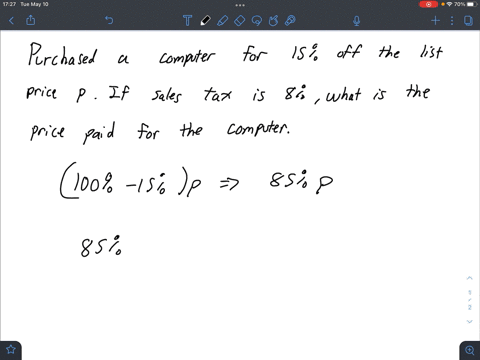 17:27 Tue May 10
70%
Purchased a computer for 15% off the list
price p. If sales tax is 8%, what is the
price paid for the computer.
(100% -15%)p => 85% p
85%
1
/
2